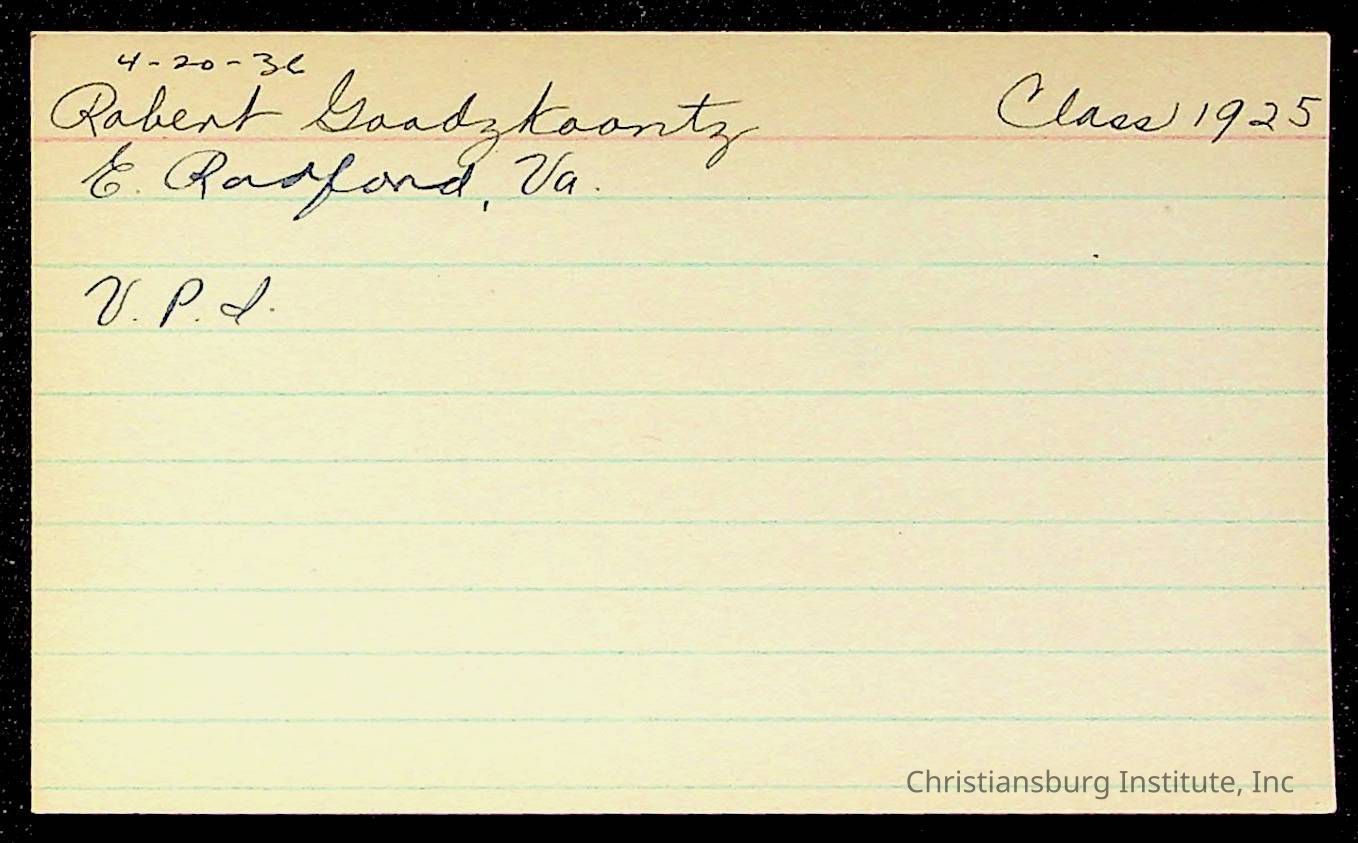 4-20-36
Robert Goodzkoontz Class 1925
E. Radford, Va.
V. P. I.
Christiansburg Institute, Inc